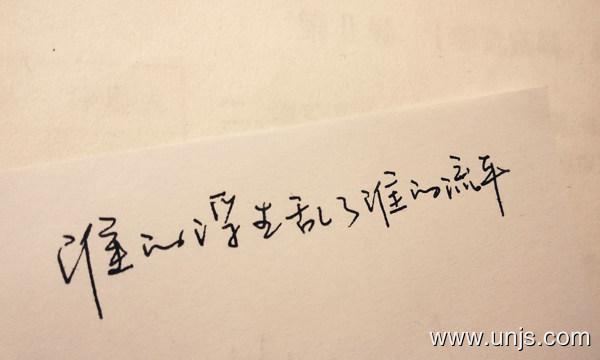 谁的浮生乱了谁的流年
www.unjs.com